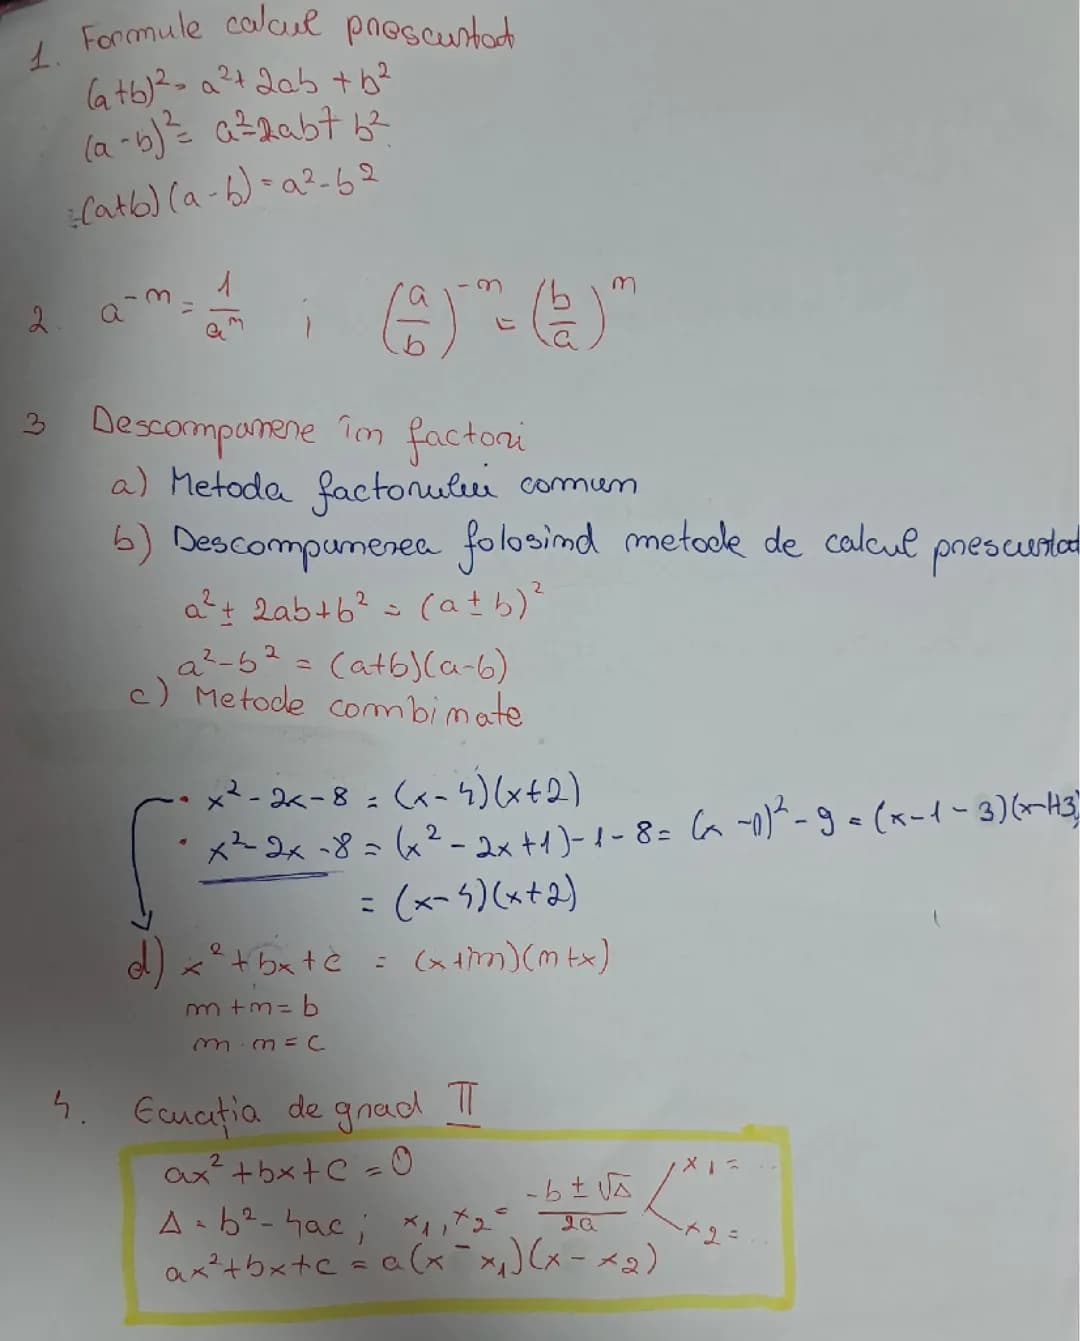 1. Formule calcul prescurtat
(a+b)² = a² + 2ab + b²
(a-b)² = a² - 2ab + b²
(a+b)(a-b) = a² - b²
2. a⁻ⁿ = 1/aⁿ ; (a/b)⁻ⁿ = (b/a)ⁿ
3 Descompunere în factori
a) Metoda factorului comun
b) Descompunerea folosind metode de calcul prescurtat
a² ± 2ab + b² = (a ± b)²
a² - b² = (a+b)(a-b)
c) Metode combinate
• x² - 2x - 8 = (x-4)(x+2)
• x² - 2x - 8 = (x² - 2x + 1) - 1 - 8 = (x - 1)² - 9 = (x - 1 - 3)(x-1+3)
= (x-4)(x+2)
d) x² + bx + c = (x+m)(n+x)
m + n = b
m · n = c
4. Ecuația de grad II
ax² + bx + c = 0
Δ = b² - 4ac ; x₁, x₂ = (-b ± √Δ)/2a x₁ = ... x₂ = ...
ax² + bx + c = a(x - x₁)(x - x₂)